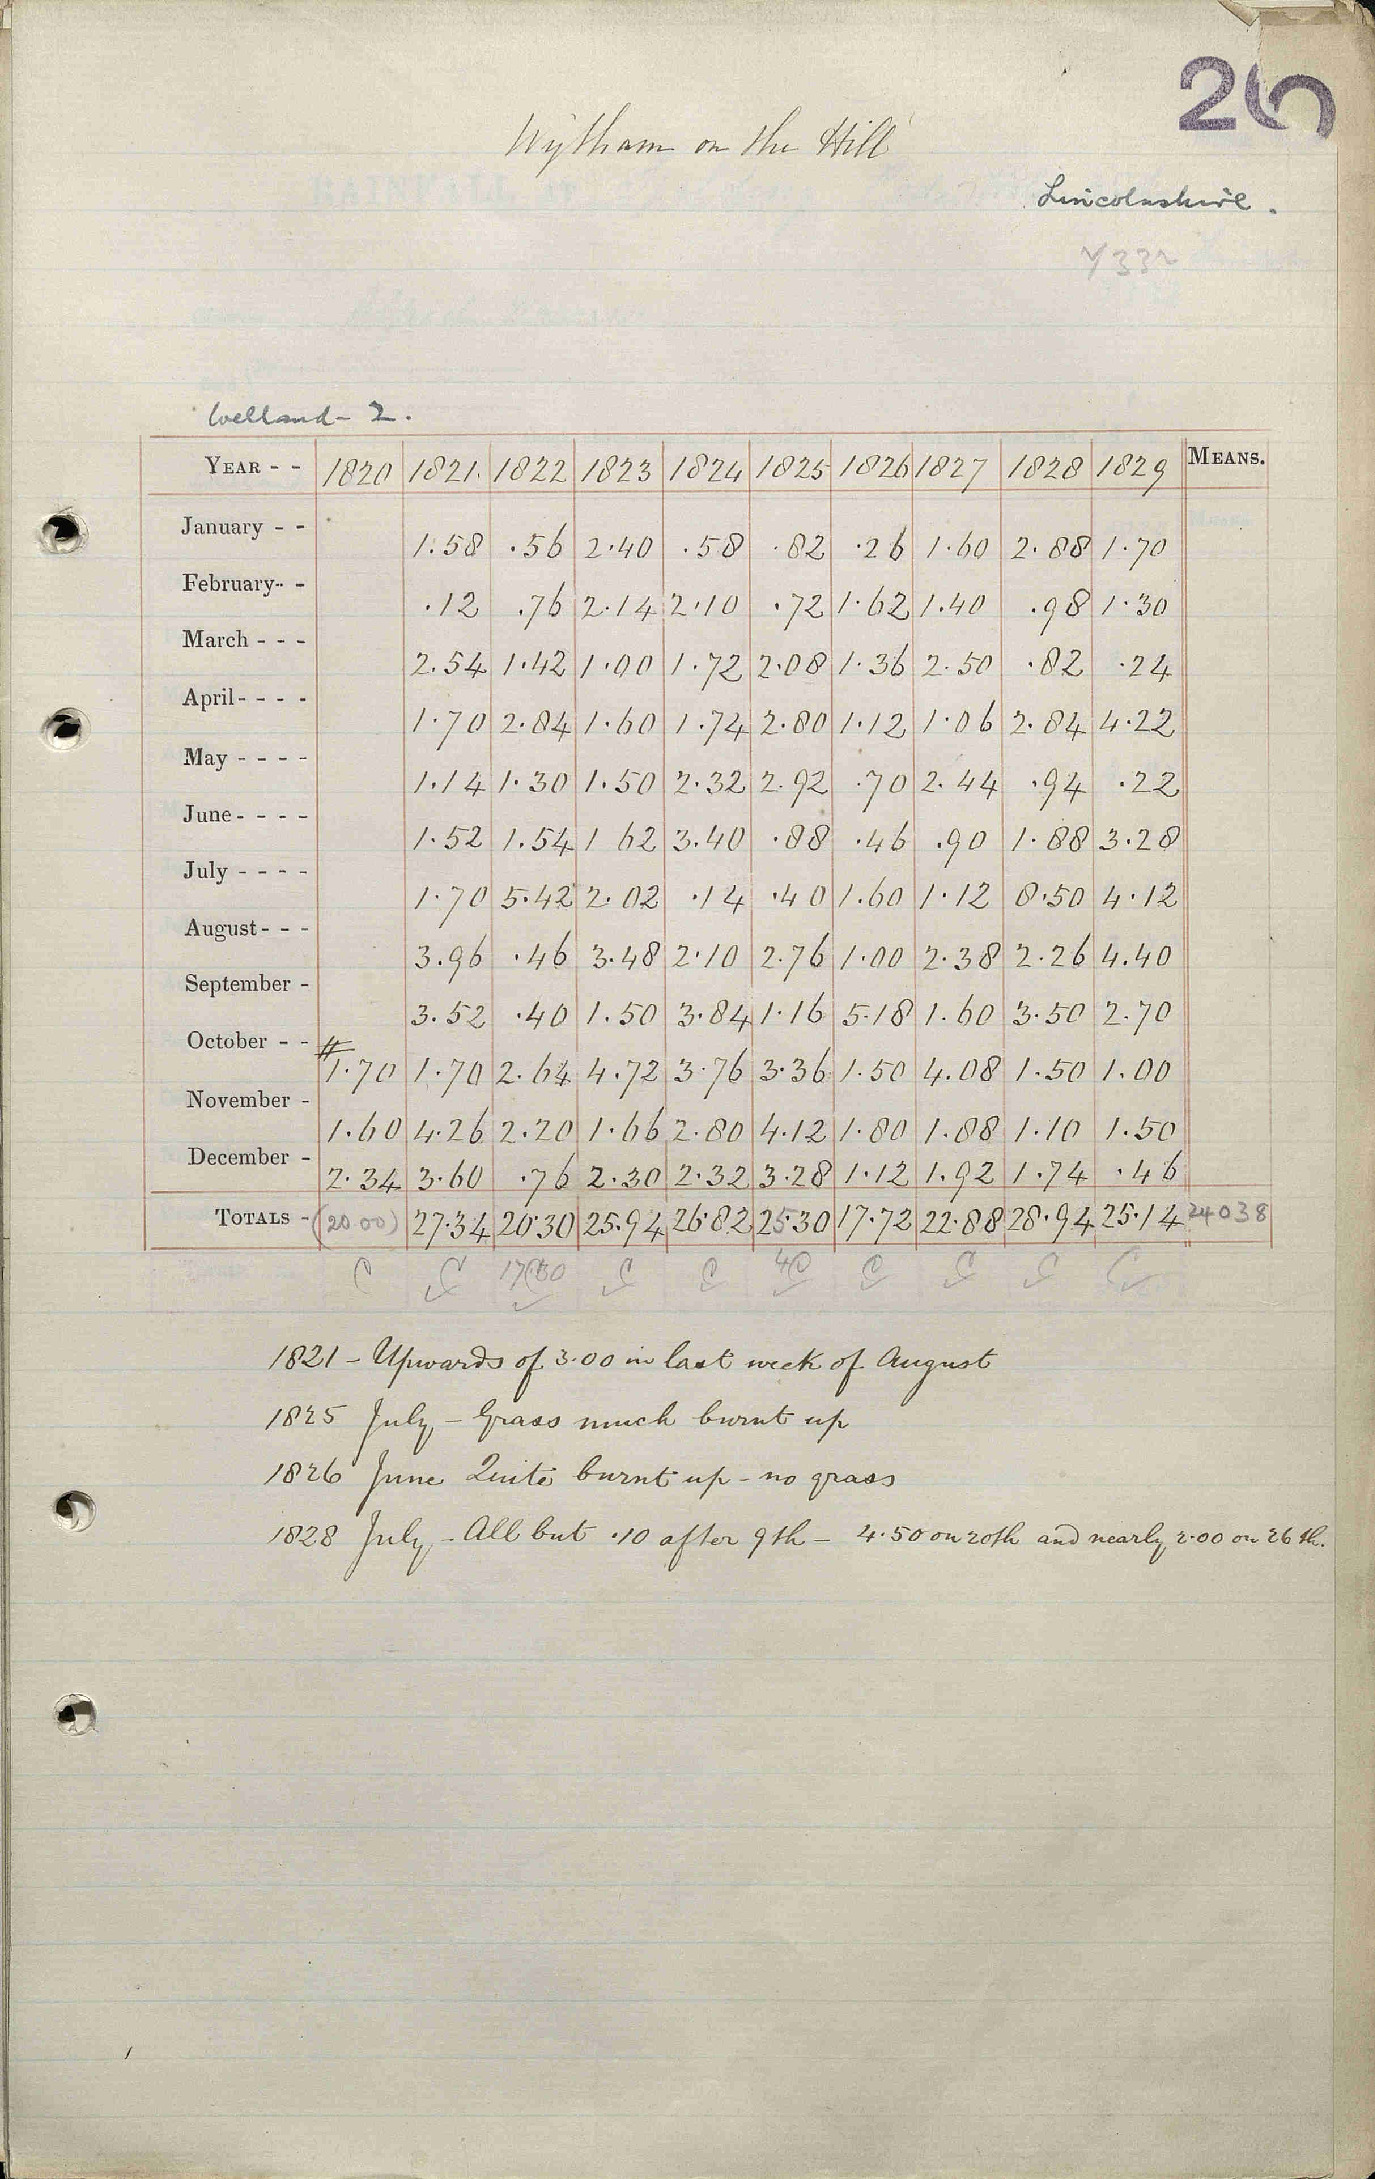 26
Wytham on the Hill
Lincolnshire.
Welland - 2.
YEAR - - 1820 1821 1822 1823 1824 1825 1826 1827 1828 1829 MEANS.
January - - 1.58 .56 2.40 .58 .82 .26 1.60 2.88 1.70
February - - .12 .76 2.14 2.10 .72 1.62 1.40 .98 1.30
March - - - 2.54 1.42 1.00 1.72 2.08 1.36 2.50 .82 .24
April - - - - 1.70 2.84 1.60 1.74 2.80 1.12 1.06 2.84 4.22
May - - - - 1.14 1.30 1.50 2.32 2.92 .70 2.44 .94 .22
June - - - - 1.52 1.54 1 62 3.40 .88 .46 .90 1.88 3.28
July - - - - 1.70 5.42 2.02 .14 .40 1.60 1.12 8.50 4.12
August - - - 3.96 .46 3.48 2.10 2.76 1.00 2.38 2.26 4.40
September - 3.52 .40 1.50 3.84 1.16 5.18 1.60 3.50 2.70
October - - # 1.70 1.70 2.64 4.72 3.76 3.36 1.50 4.08 1.50 1.00
November - 1.60 4.26 2.20 1.66 2.80 4.12 1.80 1.88 1.10 1.50
December - 2.34 3.60 .76 2.30 2.32 3.28 1.12 1.92 1.74 .46
TOTALS - (20 00) 27.34 20.30 25.94 26.82 25.30 17.72 22.88 28.94 25.14 24038
1821 - Upwards of 3.00 in last week of August
1825 July - Grass much burnt up
1826 June Quite burnt up - no grass
1828 July - All but .10 after 9th - 4.50 on 20th and nearly 2.00 on 26th.